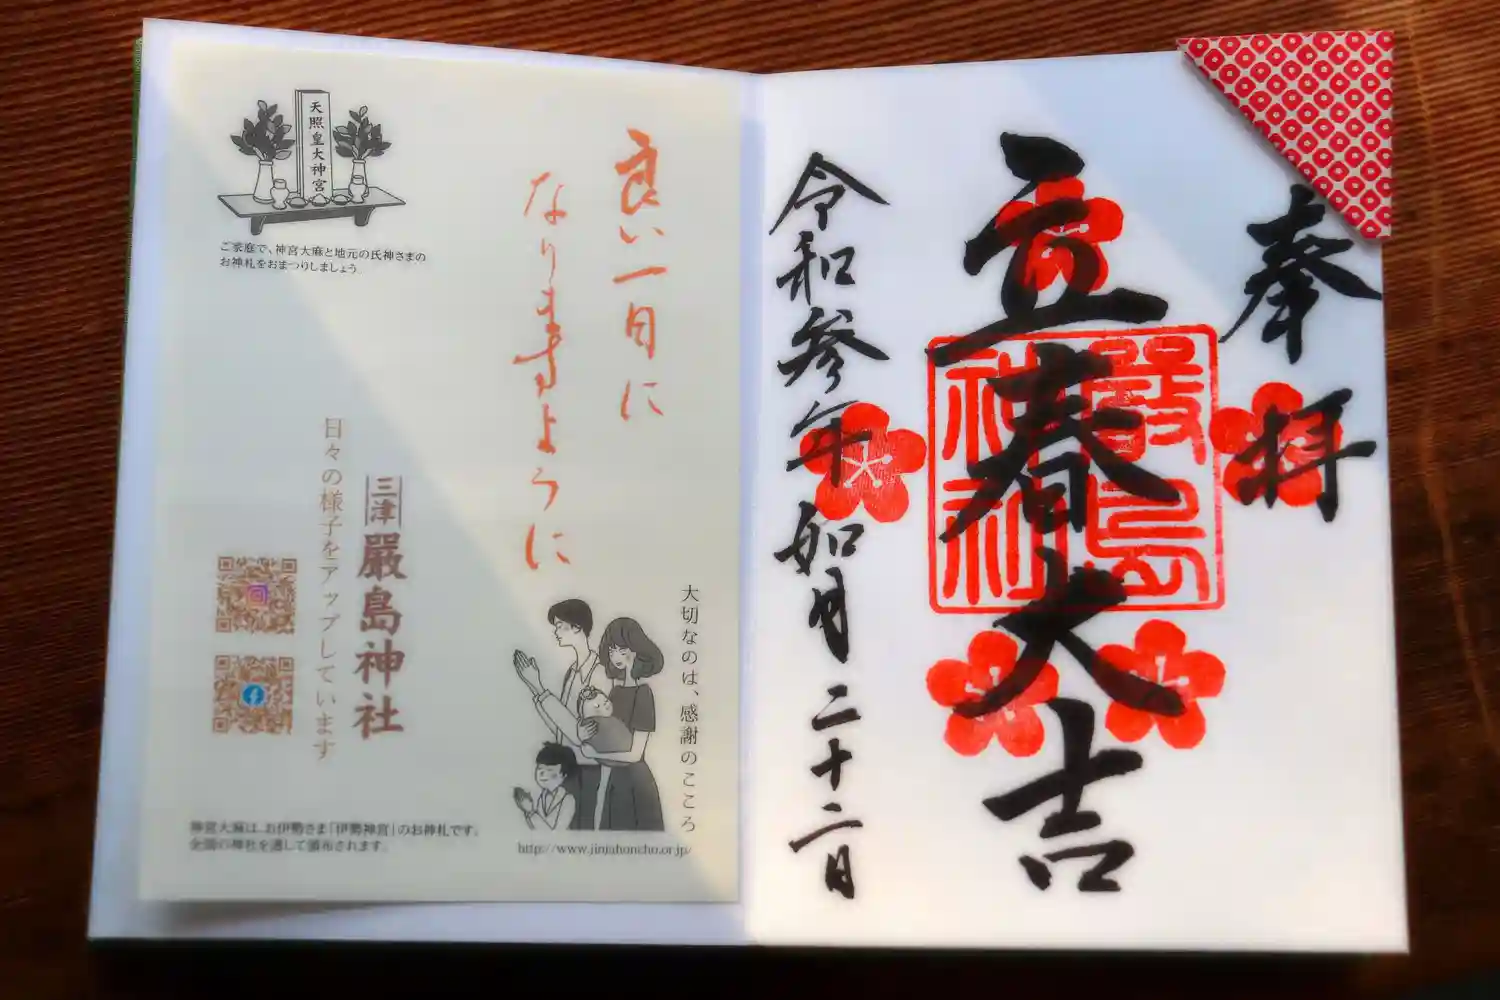 奉拝
立春大吉
嚴島
神社
令和参年如月二十二日
良い一日に
なりますように
天照皇大神宮
ご家庭で、神宮大麻と地元の氏神さまの
お神札をおまつりしましょう。
三津
嚴島神社
日々の様子をアップしています
大切なのは、感謝のこころ
神宮大麻は、お伊勢さま「伊勢神宮」のお神札です。
全国の神社を通して頒布されます。
http://www.jinjahoncho.or.jp/